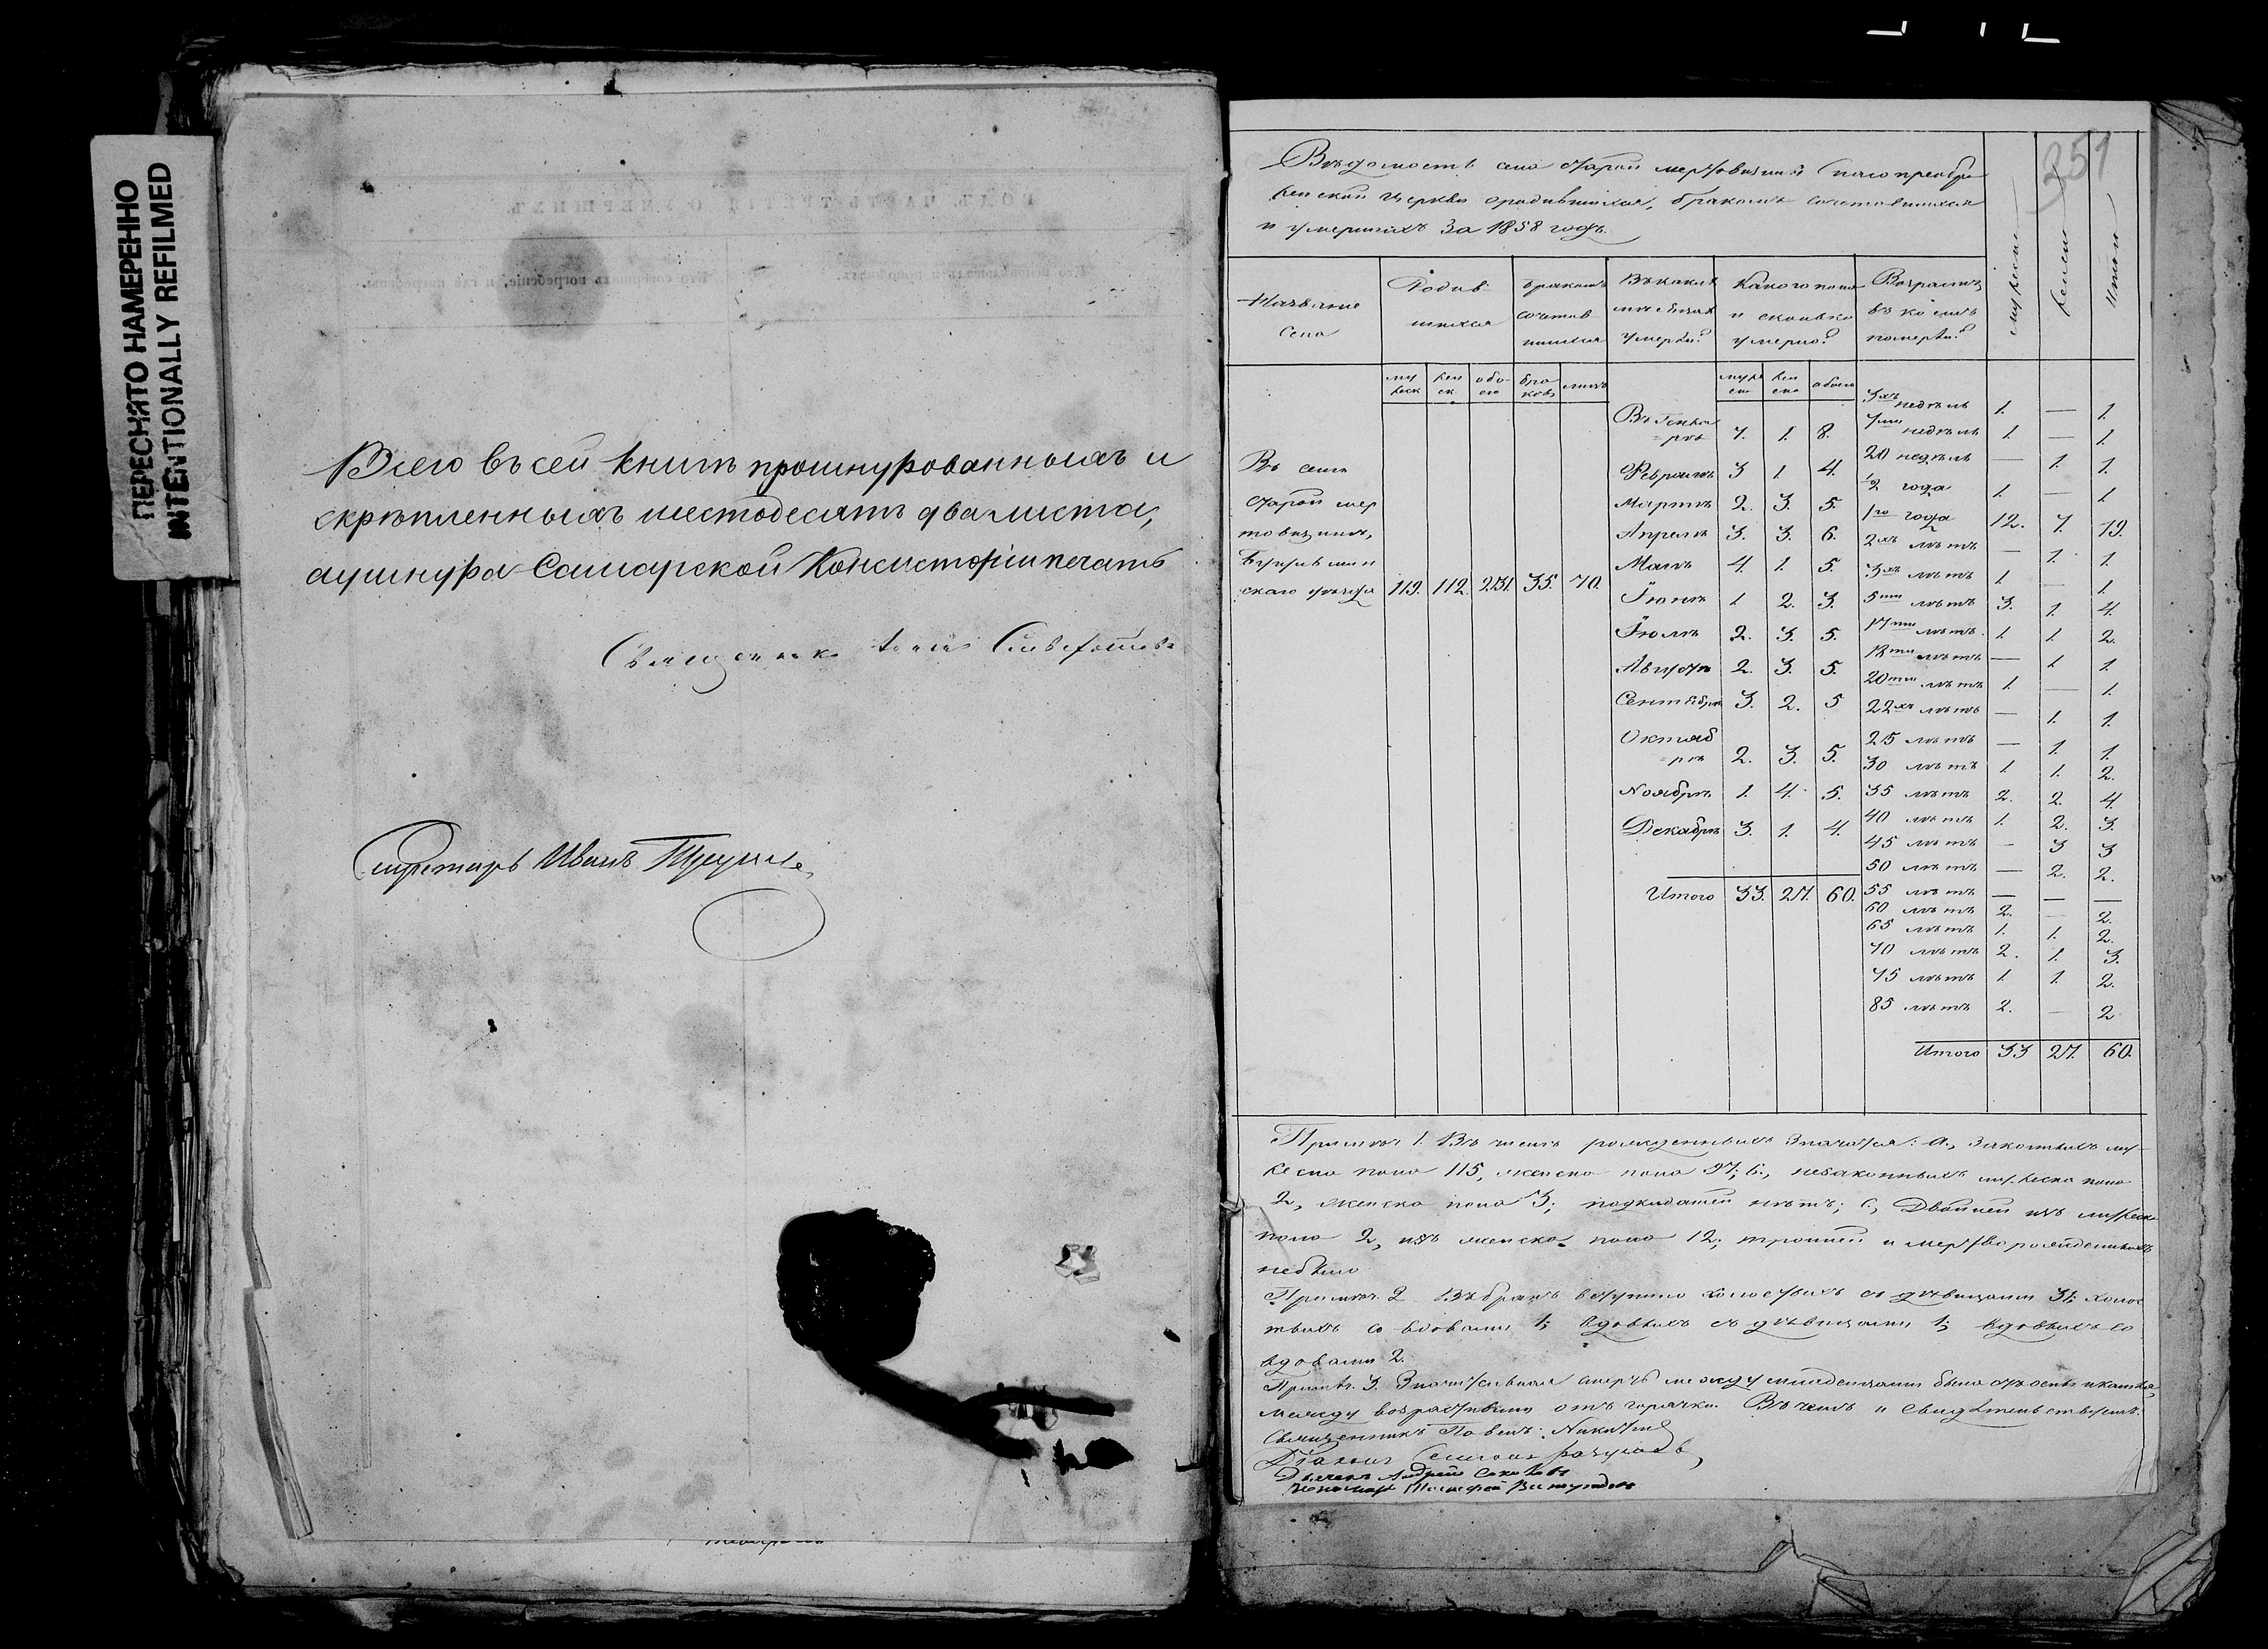 ПЕРЕСНЯТО НАМЕРЕННО
INTENTIONALLY REFILMED
Всего въ сей книгѣ прошнурованныхъ и
скрѣпленныхъ шестодесятъ два листа,
а у шнура Самарской Консисторіи печать
Священникъ
Секретарь Иванъ
251
Вѣдомость села Старой мертовщины Спасопреобра
женской церкви о родившихся, бракомъ сочетовшихся
и умершихъ За 1858 годъ.
Названіе Села
Родившихся
бракомъ сочетавшихся
Въ какихъ мѣсяцахъ умерли?
Какого пола и сколько умерло?
Возрастъ въ коемъ померли?
мужеск
женск
Итого
му жеск жен ск обо его бра ковъ лицъ муже ск жен ска обоего
Въ селѣ
Старой мер
товщинѣ,
Бугульмин
скаго уѣзда 119. 112. 231. 35. 70.
Въ Генва рѣ 7. 1. 8.
Февралѣ 3 1. 4.
Мартѣ 2. 3. 5.
Апрелѣ 3. 3. 6.
Маіѣ 4. 1. 5.
Іюнѣ 1 2. 3.
Іюлѣ 2. 3. 5.
Августѣ 2. 3. 5.
Сентябрѣ 3. 2. 5
Октяб рѣ 2. 3. 5.
Ноябрѣ 1. 4. 5.
Декабрѣ 3. 1. 4.
Итого 33. 27. 60.
3хъ недѣль 1. — 1.
7ми недѣль 1. — 1.
20 недѣль — 1. 1.
1/2 года 1. — 1.
1го года 12. 7. 19.
2хъ лѣтъ — 1. 1.
3хъ лѣтъ 1. — 1.
5ти лѣтъ 3. 1. 4.
17ти лѣтъ 1. 1. 2.
18ти лѣтъ — 1. 1.
20ти лѣтъ 1. — 1.
22хъ лѣтъ — 1. 1.
25 лѣтъ — 1. 1.
30 лѣтъ 1. 1. 2.
35 лѣтъ 2. 2. 4.
40 лѣтъ 1. 2. 3.
45 лѣтъ — 3 3
50 лѣтъ — 2. 2.
55 лѣтъ — — —
60 лѣтъ 2. — 2.
65 лѣтъ 1. 1. 2.
70 лѣтъ 2. 1. 3.
75 лѣтъ 1. 1. 2.
85 лѣтъ 2. — 2
Итого 33 27. 60.
Примѣч 1. Въ числѣ рожденныхъ значатся: а, законныхъ му-
жеска пола 115, женска пола 97; б, незаконныхъ мужеска пола
2, женска пола 3; подкидышей нѣтъ; в, Двойней изъ мужеска
пола 2, изъ женска пола 12; тройней и мертворожденныхъ
небыло
Примѣч. 2 Въ бракъ вступило холостыхъ съ дѣвицами 31; холос
тыхъ со вдовами 1; вдовыхъ съ дѣвицами 1; вдовыхъ со
вдовами 2.
Примѣч. 3. Значительная смерть между младенцами была отъ оспы и кашля,
между возрастными отъ горячки. Въ чемъ и свидѣтельствуемъ.
Священникъ Павелъ Никитинъ
Діаконъ
Дьячекъ Андрей Соколовъ
Пономарь